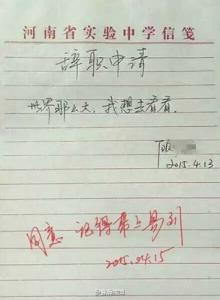 河南省实验中学信笺
辞职申请
世界那么大，我想去看看。
顾
2015.4.13
同意 记得带上易到
2015.04.15